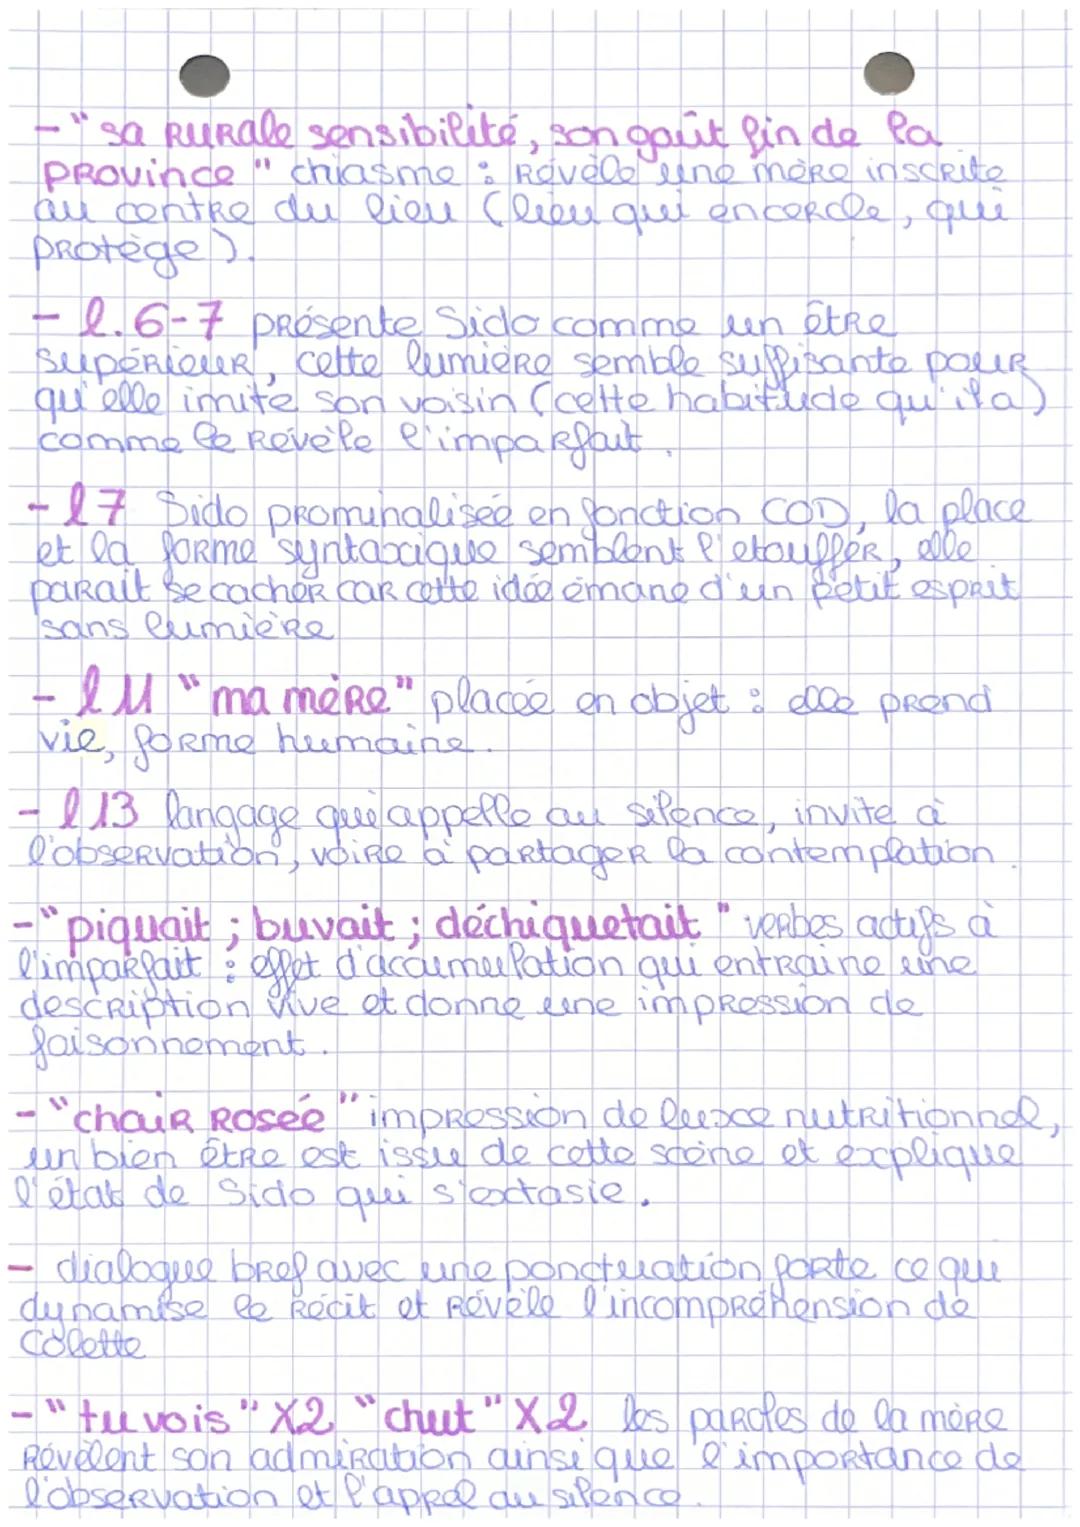 - "sa rurale sensibilité, son goût fin de la
province" chiasme : révèle une mère inscrite
au centre du lieu (lieu qui encercle, qui
protège).
- l.6-7 présente Sido comme un être
supérieur, cette lumière semble suffisante pour
qu'elle imite son voisin (cette habitude qu'il a)
comme le révèle l'imparfait.
- l7 Sido prominalisée en fonction COD, la place
et la forme syntaxique semblent l'etouffer, elle
parait se cacher car cette idée émane d'un petit esprit
sans lumière
- l11 "ma mère" placée en objet : elle prend
vie, forme humaine.
- l13 langage qui appelle au silence, invite à
l'observation, voire à partager la contemplation.
- "piquait ; buvait ; déchiquetait" verbes actifs à
l'imparfait : effet d'accumulation qui entraine une
description vive et donne une impression de
faisonnement.
- "chair rosée" impression de luxe nutritionnel,
un bien être est issu de cette scène et explique
l'état de Sido qui s'extasie.
- dialogue bref avec une ponctuation forte ce qui
dynamise le récit et révèle l'incompréhension de
Colette
- "tu vois" X2 "chut" X2 les paroles de la mère
révèlent son admiration ainsi que l'importance de
l'observation et l'appel au silence.